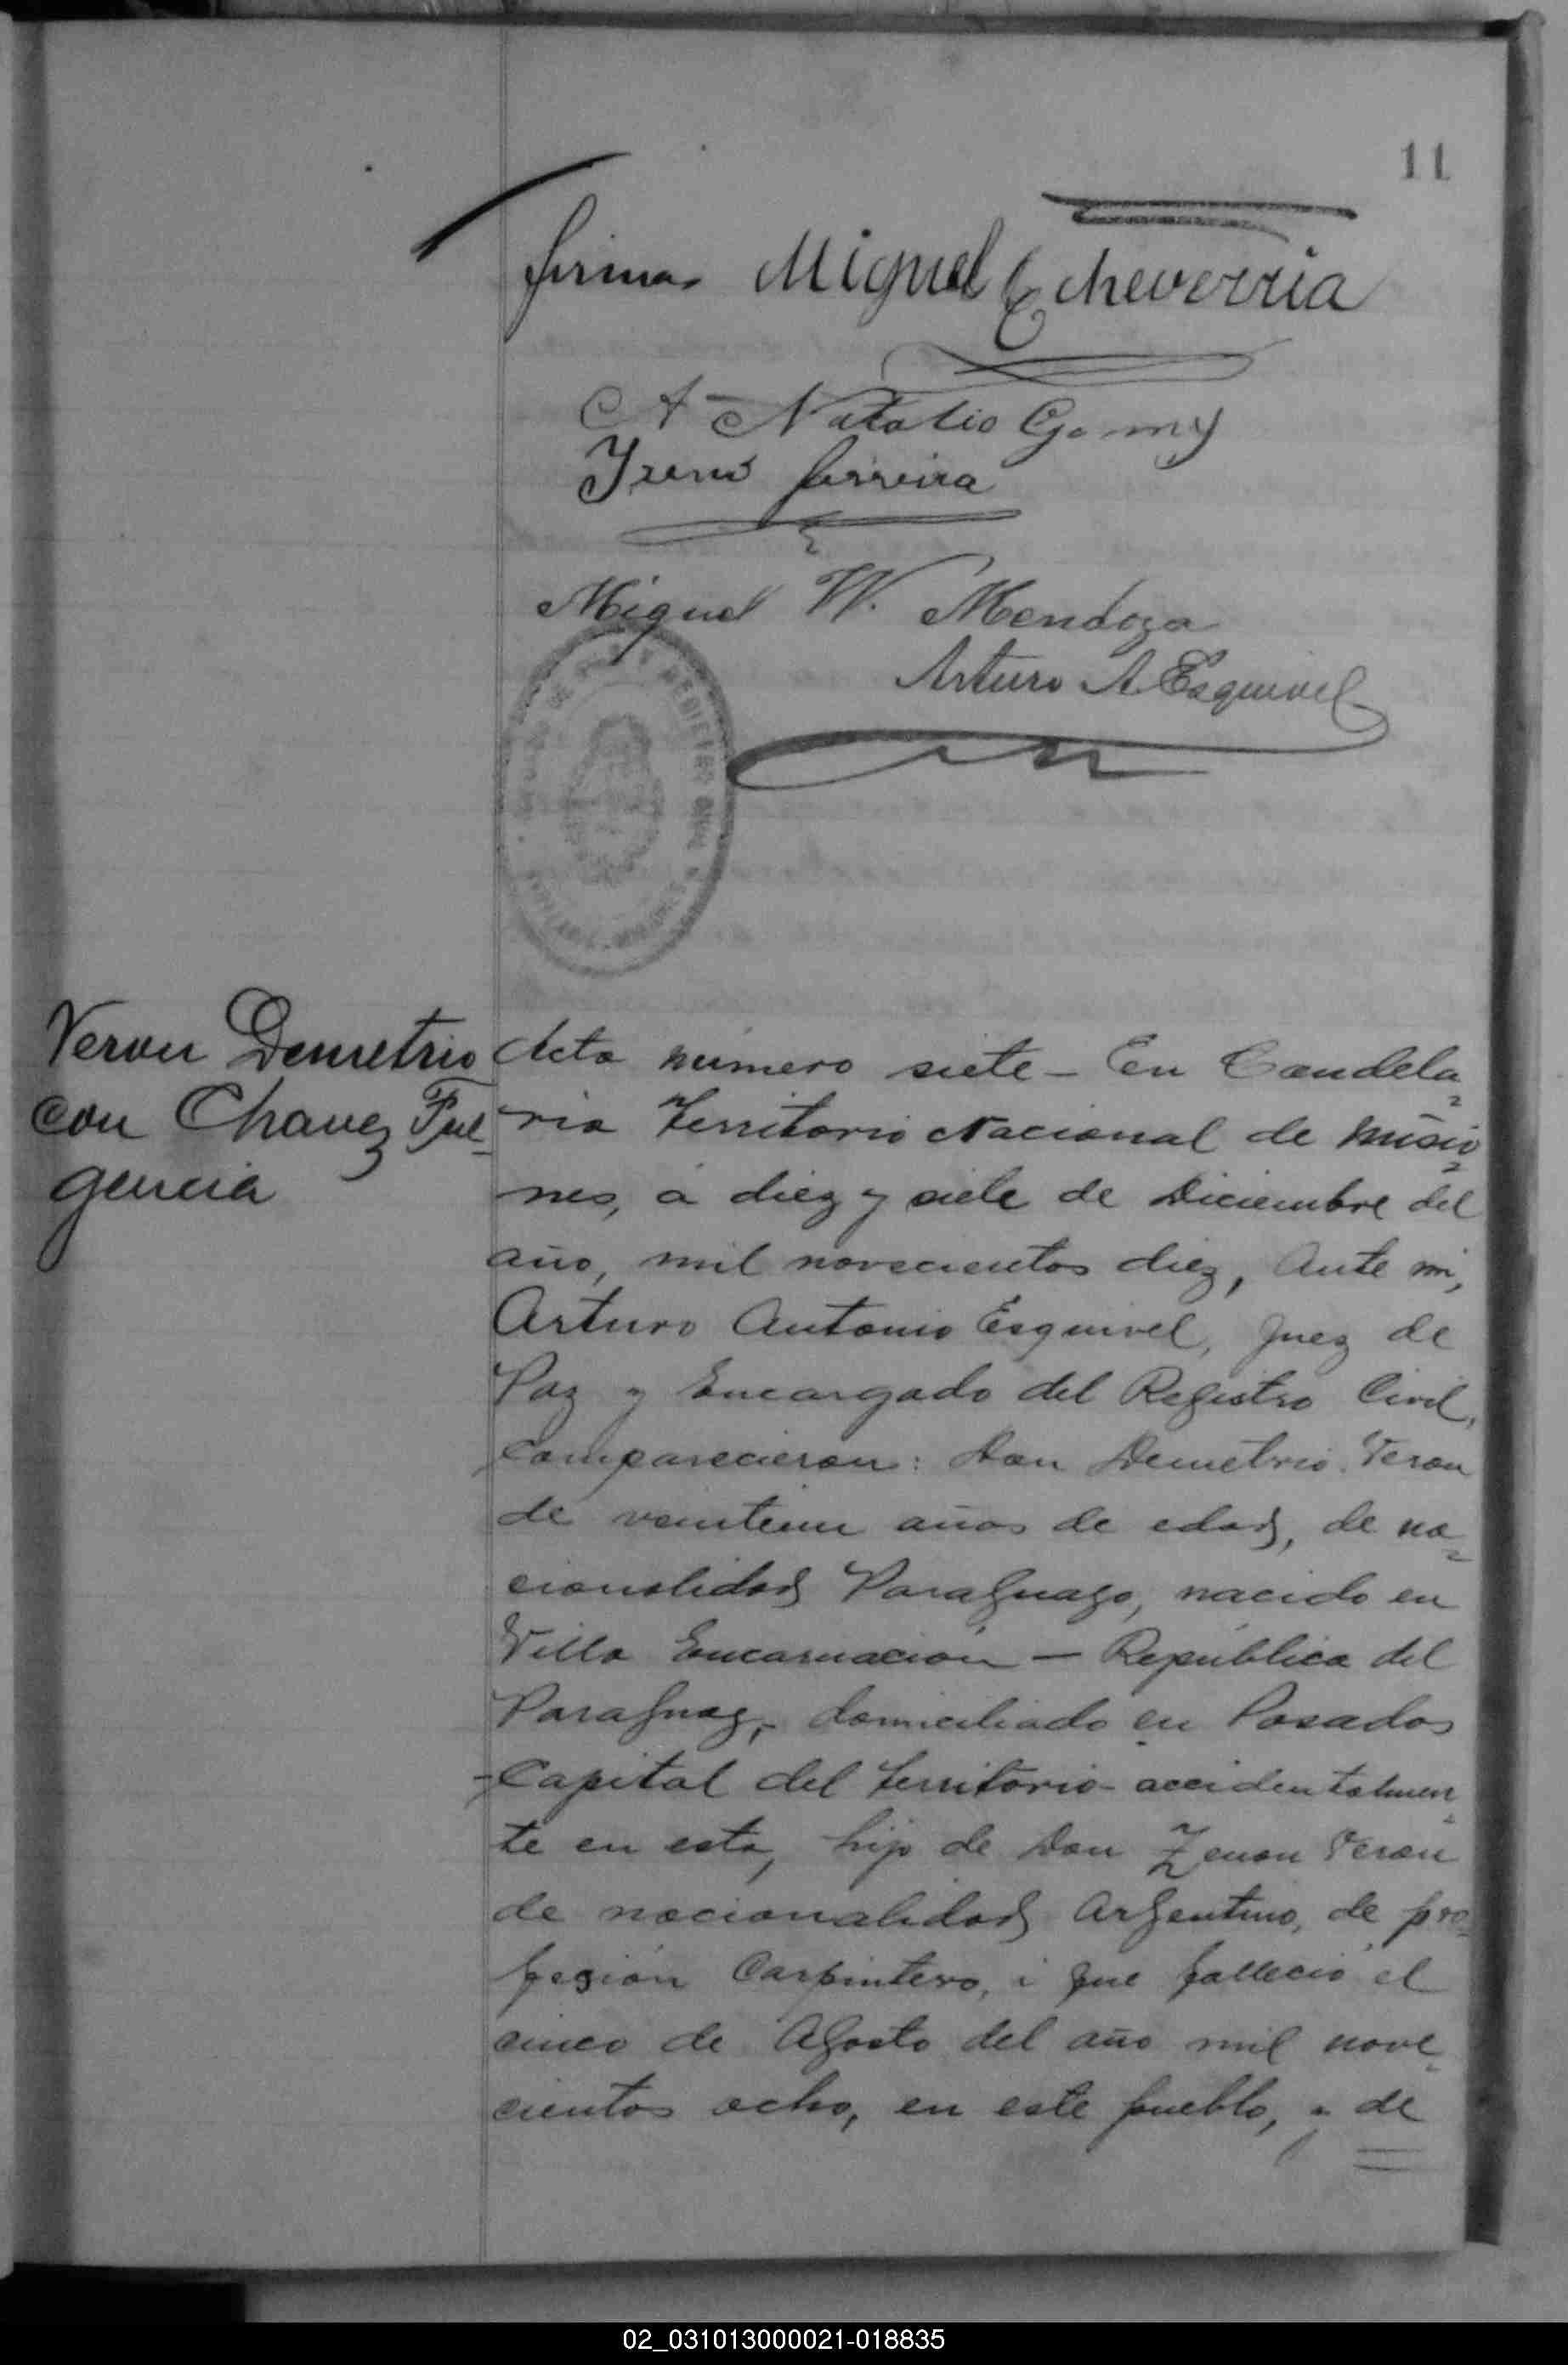 11
firmas Miguel Echeverria
A Natalio Gomez
Ireneo Ferreira
Miguel W. Mendoza
Arturo A Esquivel
REGISTRO CIVIL
Veron Demetrio
con Chavez Ful-
gencia
Acta número siete - En Candela-
ria Territorio Nacional de Misio-
nes, á diez y siete de Diciembre del
año, mil novecientos diez, Ante mi,
Arturo Antonio Esquivel, Juez de
Paz y Encargado del Registro Civil,
comparecieron: Don Demetrio Veron
de veintiun años de edad, de na-
cionalidad Paraguayo, nacido en
Villa Encarnación - República del
Paraguay,- domiciliado en Posadas
-Capital del Territorio- accidentalmen-
te en esta, hijo de Don Zenon Veron
de nacionalidad Argentino, de pro-
fesión Carpintero, i que falleció el
cinco de Agosto del año mil nove-
cientos ocho, en este pueblo, y de
02_031013000021-018835